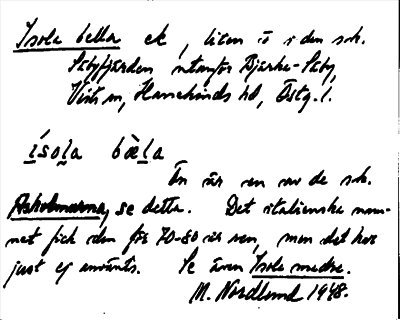 Isola bella ek, liten ö i den s.k.
Säbyfjärden utanför Djärke-Säby,
Vists sn, Hanekinds hd, Östg.l.
ísola bæ̀la
Ön är en av de s.k.
Askholmarna, se detta. Det italienska nam-
net fick den för 70-80 år sen, men det har
just ej använts. Se även Isola madre.
M. Nordlund 1948.